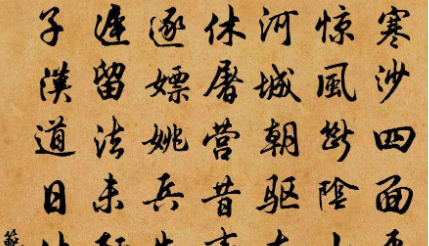 寒沙四面
惊風斷陰
河城朝驱
休屠营昔
逐嫖姚兵
遲留法未
子漢道日